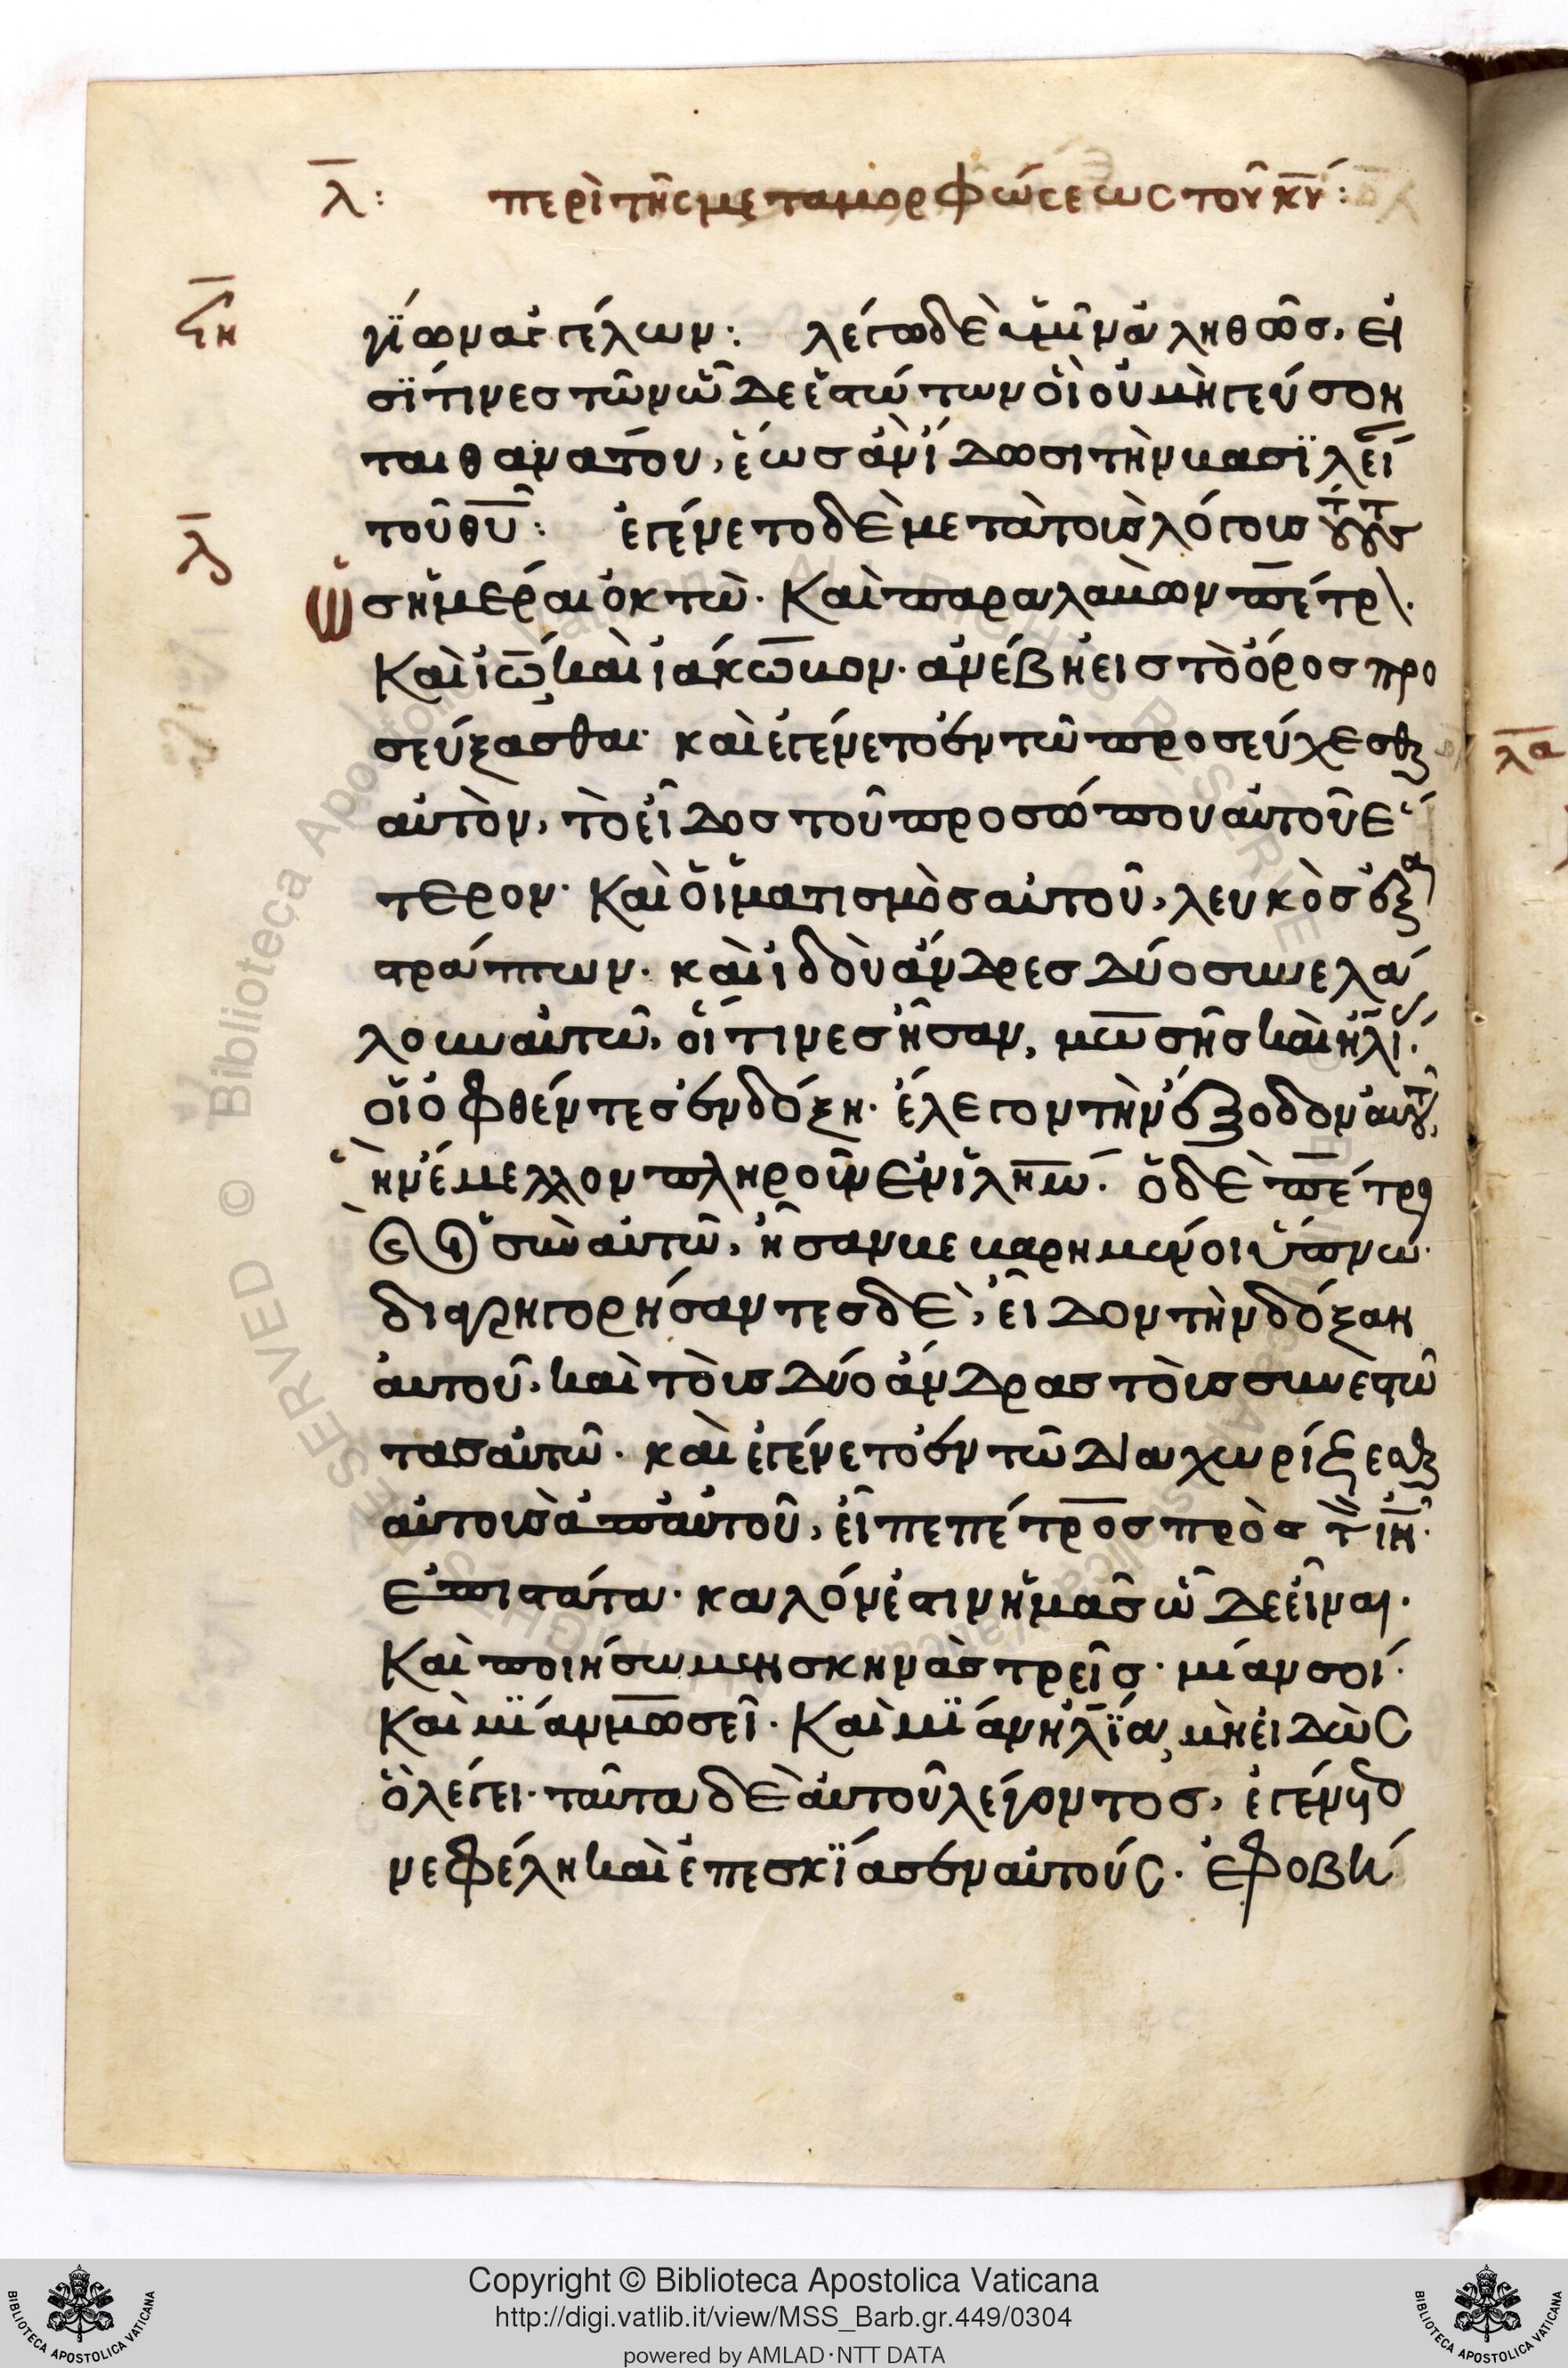 λ: περὶ τῆς μεταμορφώσεως τοῦ κυ:
ϟη
γίων ἀγγέλων: λέγω δὲ ὑμῖν ἀληθῶς, εἰ
σί τινες τῶν ὧδε ἑστώτων οἳ οὐ μὴ γεύσον
ται θανάτου, ἕως ἂν ἴδωσι τὴν βασιλεί
τοῦ θυ: ἐγένετο δὲ μετὰ τοὺς λόγους τούτους
λ
ὡσ ἡμέραι ὀκτώ. Καὶ παραλαβὼν πέτρ.
Καὶ ἰω καὶ ἰάκωβον. ἀνέβη εἰς τὸ ὄρος προ
σεύξασθαι. καὶ ἐγένετο ἐν τῷ προσεύχεσθαι
αὐτὸν, τὸ εἶδος τοῦ προσώπου αὐτοῦ ἕ
τερον. Καὶ ὁ ἱματισμὸς αὐτοῦ, λευκὸς ἐξα
στράπτων. καὶ ἰδοὺ ἄνδρες δύο συνελά
λουν αὐτῷ, οἵτινες ἦσαν, μωσῆς καὶ ἠλί.
οἳ ὀφθέντες ἐν δόξη. ἔλεγον τὴν ἔξοδον αὐτοῦ,
ἣν ἔμελλον πληροῦν ἐν ἱλημ. ὁ δὲ πέτρος
καὶ οἱ σὺν αὐτῷ, ἦσαν βεβαρημένοι ὕπνω.
διαγρηγορήσαντες δὲ, εἶδον τὴν δόξαν
αὐτοῦ. καὶ τοὺς δύο ἄνδρας τοὺς συνεστῶ
τας αὐτῷ. καὶ ἐγένετο ἐν τῷ διαχωρίζεσθαι
αὐτοὺς ἀπ αὐτοῦ, εἶπε πέτρος πρὸς τὸν ιν.
ἐπιστάτα. καλόν ἐστιν ἡμᾶς ὧδε εἶναι.
Καὶ ποιήσωμεν σκηνὰς τρεῖς. μίαν σοί.
Καὶ μίαν μωσεῖ. Καὶ μίαν ἠλία, μὴ εἰδὼς
ὃ λέγει. ταῦτα δὲ αὐτοῦ λέγοντος, ἐγένετο
νεφέλη καὶ ἐπεσκίασεν αὐτούς. ἐφοβή
λα
Copyright © Biblioteca Apostolica Vaticana
http://digi.vatlib.it/view/MSS_Barb.gr.449/0304
powered by AMLAD·NTT DATA
BIBLIOTECA APOSTOLICA VATICANA
BIBLIOTECA APOSTOLICA VATICANA